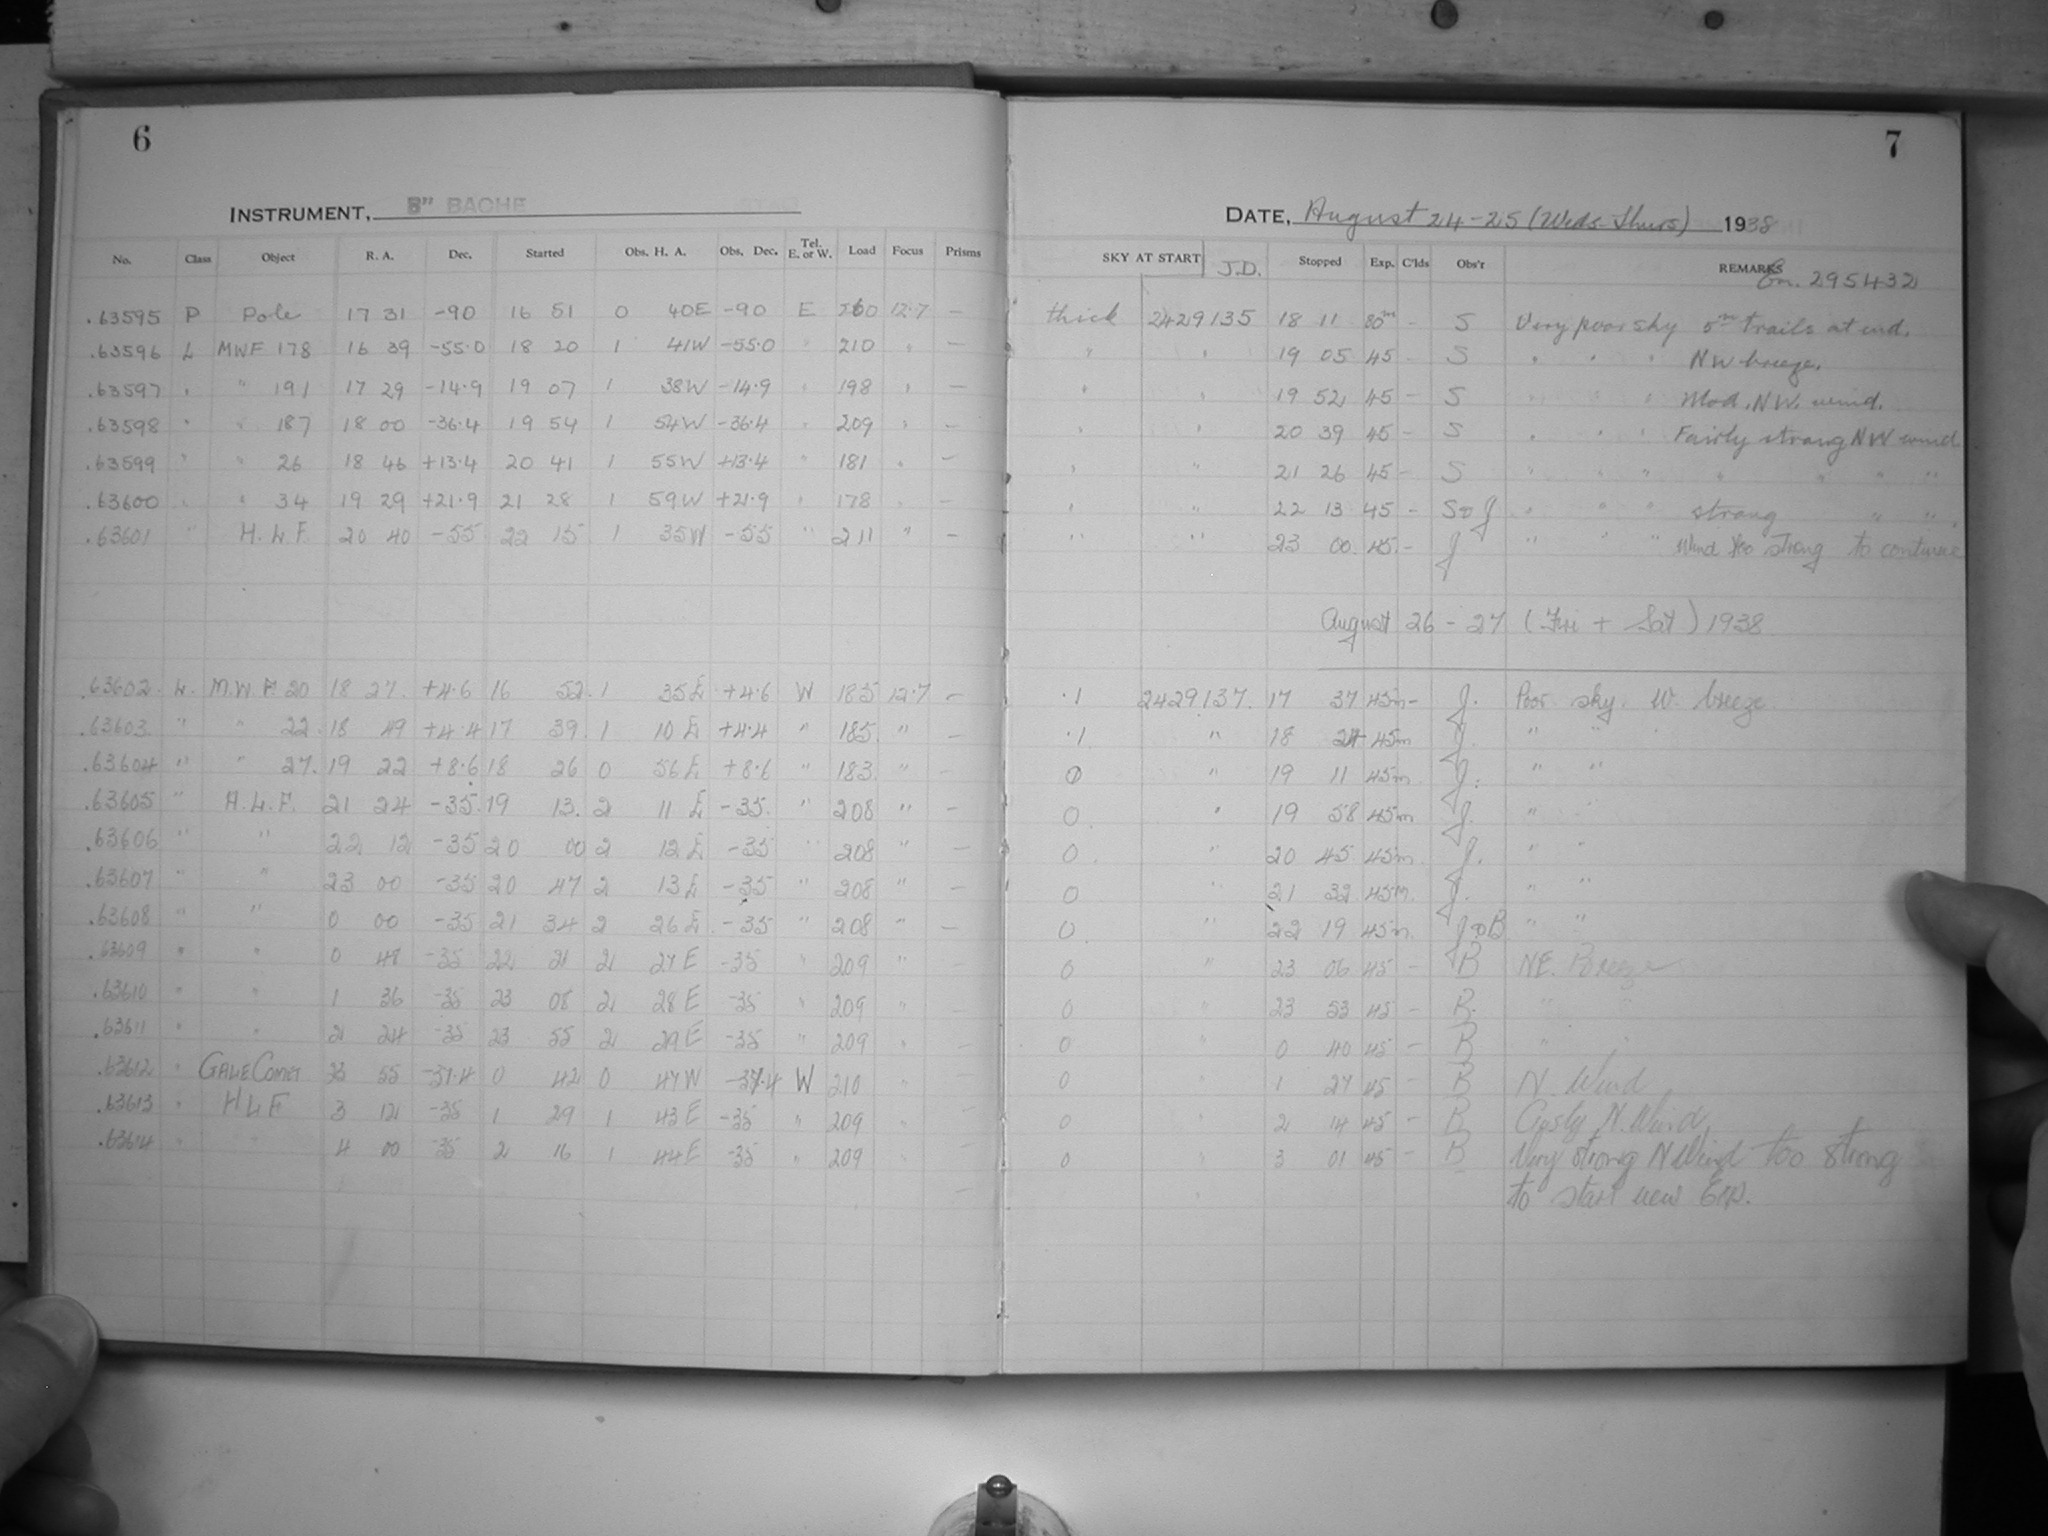 6
INSTRUMENT, 8" BACHE
No. Class Object R. A. Dec. Started Obs. H. A. Obs. Dec. Tel. E. or W. Load Focus Prisms
.63595 P Pole 17 31 -90 16 51 0 40E -90 E 12.7 —
.63596 L MWF 178 16 39 -55.0 18 20 1 41W -55.0 " 210 " —
.63597 " " 191 17 29 -14.9 19 07 1 38W -14.9 " 198 " —
.63598 " " 187 18 00 -36.4 19 54 1 54W -36.4 " 209 " —
.63599 " " 26 18 46 +13.4 20 41 1 55W +13.4 " 181 " —
.63600 " " 34 19 29 +21.9 21 28 1 59W +21.9 " 178 " —
.63601 " H.L.F. 20 40 -55 22 15 1 35W -55 " 211 " —
.63602 L. M.W.F. 20 18 27. +4.6 16 52. 1 35E +4.6 W 185 12.7 —
.63603. " " 22. 18 49 +4.4 17 39. 1 10E +4.4 " 185. " —
.63604 " " 27. 19 22 +8.6 18 26 0 56E +8.6 " 183. " —
.63605 " H.L.F. 21 24 -35. 19 13. 2 11E -35. " 208 " —
.63606 " " 22 12 -35 20 00 2 12E -35 " 208 " —
.63607 " " 23 00 -35 20 47 2 13E -35 " 208 " —
.63608 " " 0 00 -35 21 34 2 26E -35 " 208 " —
.63609 " " 0 48 -35 22 21 2 27E -35 " 209 " —
.63610 " " 1 36 -35 23 08 2 28E -35 " 209 " —
.63611 " " 2 24 -35 23 55 2 29E -35 " 209 " —
.63612 " GALE COMET 55 -37.4 0 42 0 47W -37.4 W 210 " —
.63613 " HLF 3 12 -35 1 29 1 43E -35 " 209 " —
.63614 " " 4 00 -35 2 16 1 44E -35 " 209 " —
7
DATE, August 24-25 (Weds-Thurs) 1938
SKY AT START J.D. Stopped Exp. C'lds Obs'r REMARKS
295432
thick 2429135 18 11 80m - S Very poor sky 5m trails at end.
" " 19 05 45 - S " " " NW breeze.
" " 19 52 45 - S " " " Mod. NW. wind.
" " 20 39 45 - S " " " Fairly strong NW wind
" " 21 26 45 - S " " " " " "
" " 22 13 45 - S J " " " strong " "
" " 23 00 45 - J " " " Wind too strong to continue
August 26-27 (Fri + Sat) 1938
.1 2429137. 17 37 45m - J. Poor sky. W. breeze.
.1 " 18 24 45m J. " "
0 " 19 11 45m J. " "
0 " 19 58 45m J. " "
0 " 20 45 45m J. " "
0 " 21 32 45m. J. " "
0 " 22 19 45m. J B " "
0 " 23 06 45 - B NE. Breeze
0 " 23 53 45 - B. " "
0 " 0 40 45 - B " "
0 " 1 27 45 - B N. Wind
0 " 2 14 45 - B Gusty N. Wind
0 " 3 01 45 - B Very strong N Wind too strong
to start new Exp.